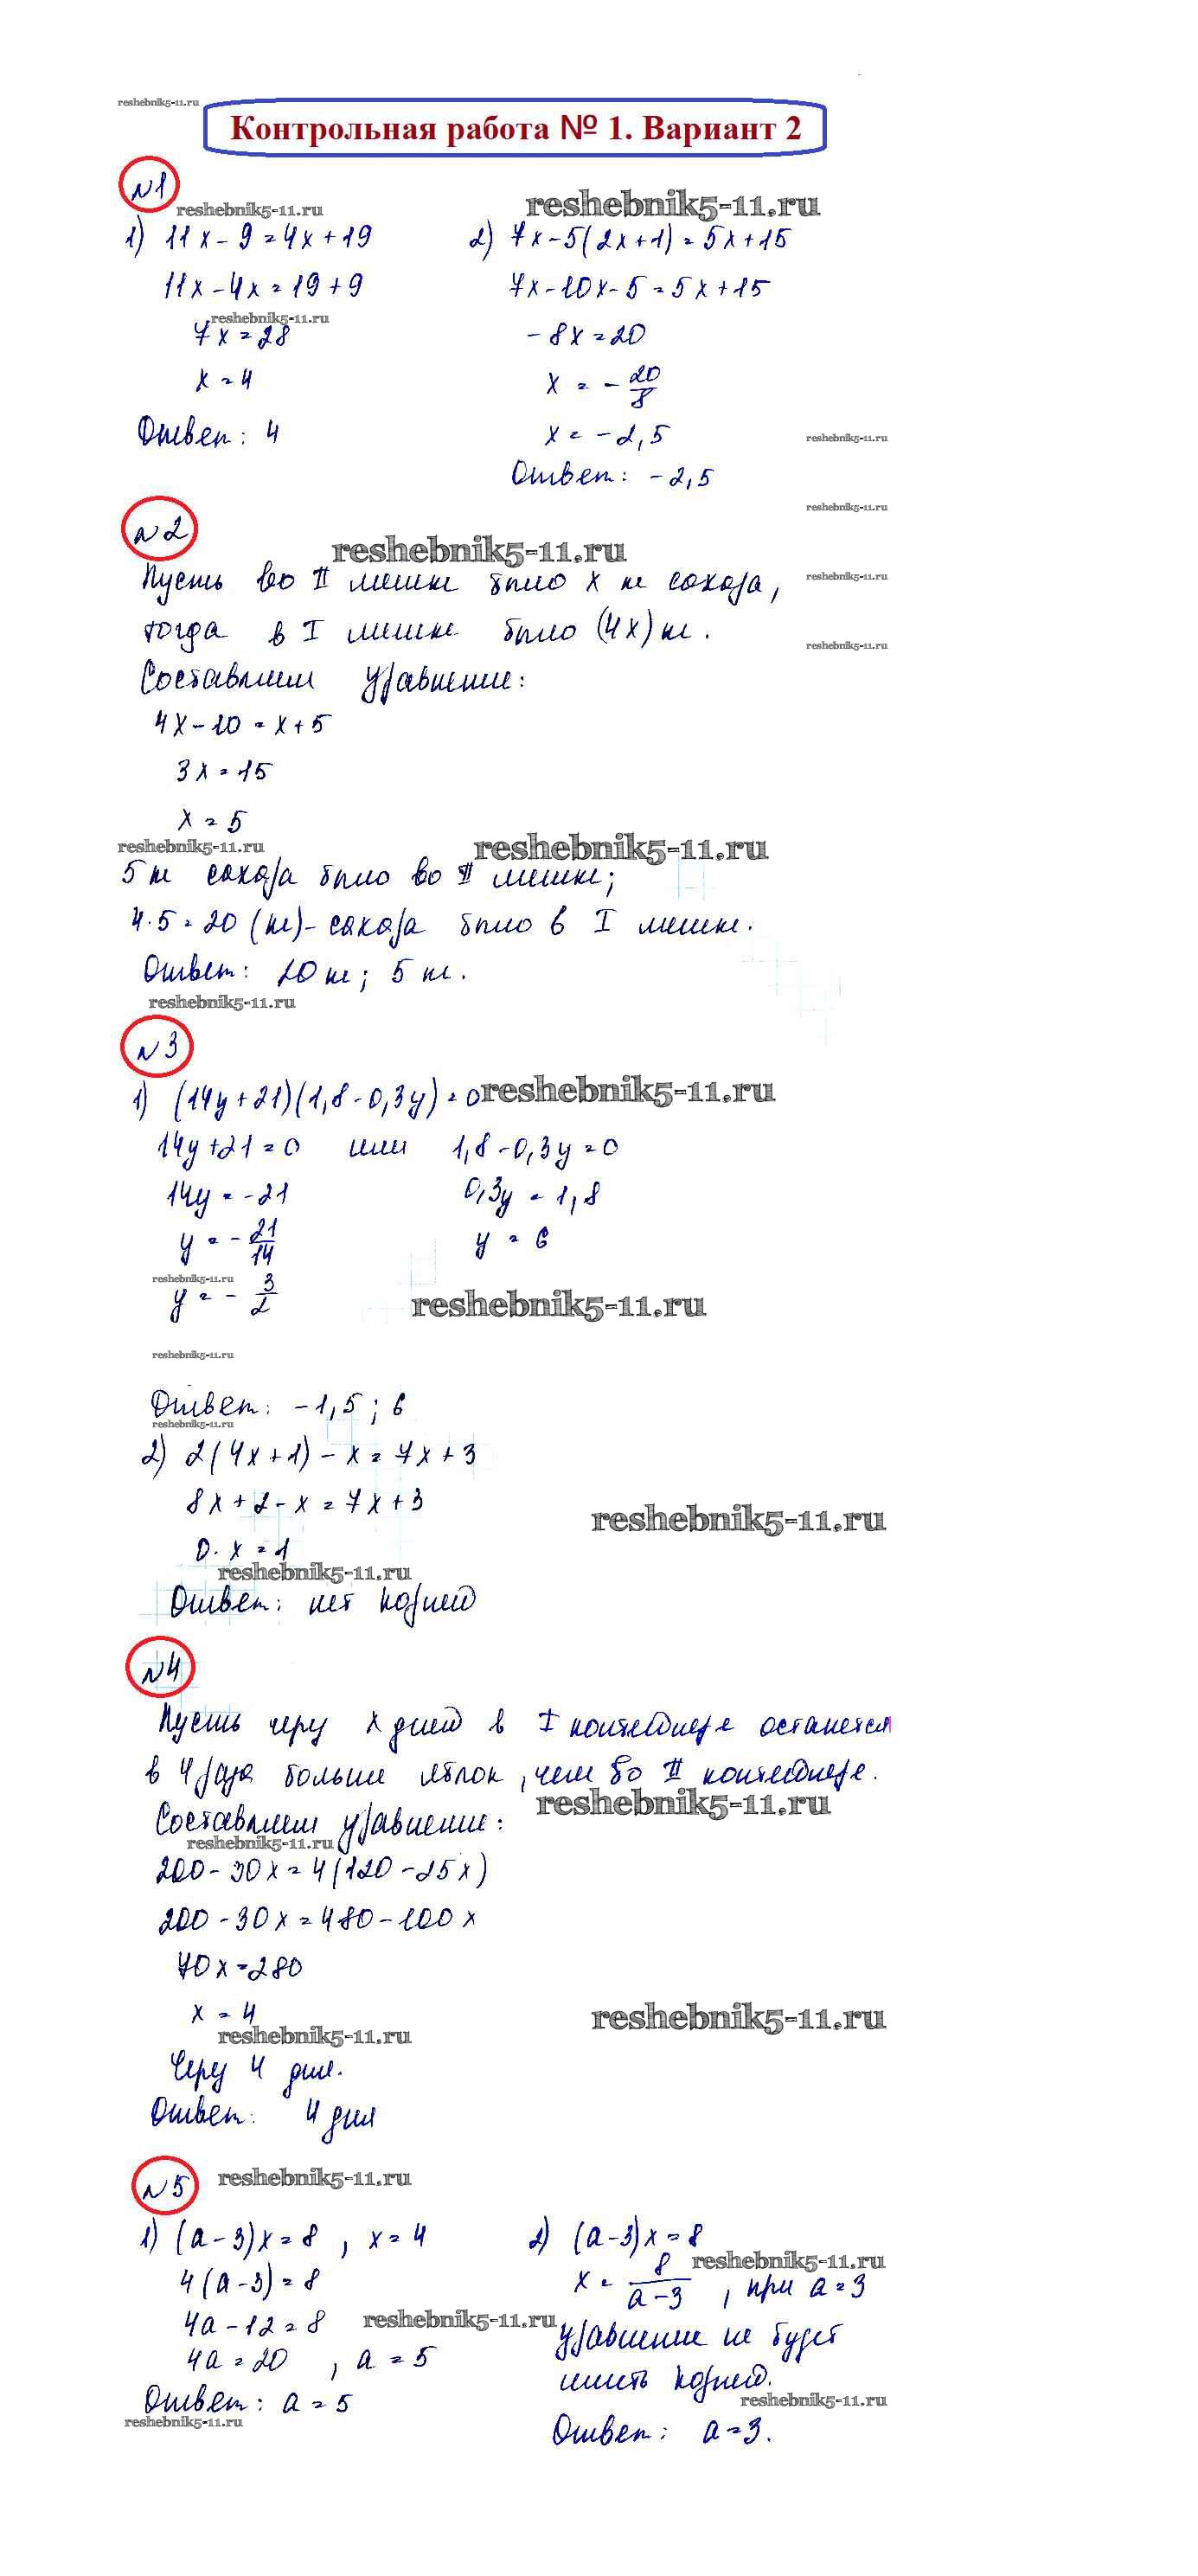 reshebnik5-11.ru
Контрольная работа № 1. Вариант 2
№1
reshebnik5-11.ru
reshebnik5-11.ru
1) 11x-9=4x+19
11x-4x=19+9
reshebnik5-11.ru
7x=28
x=4
Ответ: 4
2) 7x-5(2x+1)=5x+15
7x-10x-5=5x+15
-8x=20
x=-20/8
x=-2,5
reshebnik5-11.ru
Ответ: -2,5
reshebnik5-11.ru
№2
reshebnik5-11.ru
Пусть во II мешке было x кг сахара,
reshebnik5-11.ru
тогда в I мешке было (4x) кг.
reshebnik5-11.ru
Составим уравнение:
4x-10=x+5
3x=15
x=5
reshebnik5-11.ru
reshebnik5-11.ru
5 кг сахара было во II мешке;
4·5=20 (кг)- сахара было в I мешке.
Ответ: 20 кг; 5 кг.
reshebnik5-11.ru
№3
1) (14y+21)(1,8-0,3y)=0
reshebnik5-11.ru
14y+21=0 или 1,8-0,3y=0
14y=-21 0,3y=1,8
y=-21/14 y=6
reshebnik5-11.ru
y=-3/2
reshebnik5-11.ru
reshebnik5-11.ru
Ответ: -1,5; 6
reshebnik5-11.ru
2) 2(4x+1)-x=7x+3
8x+2-x=7x+3
reshebnik5-11.ru
0·x=1
reshebnik5-11.ru
Ответ: нет корней
№4
Пусть через x дней в I контейнере останется
в 4 раза больше яблок, чем во II контейнере.
reshebnik5-11.ru
Составим уравнение:
reshebnik5-11.ru
200-30x=4(120-25x)
200-30x=480-100x
70x=280
x=4
reshebnik5-11.ru
reshebnik5-11.ru
Через 4 дня.
Ответ: 4 дня
№5
reshebnik5-11.ru
1) (a-3)x=8, x=4
4(a-3)=8
4a-12=8
reshebnik5-11.ru
4a=20, a=5
Ответ: a=5
reshebnik5-11.ru
2) (a-3)x=8
reshebnik5-11.ru
x=8/(a-3), при a=3
уравнение не будет
иметь корней.
reshebnik5-11.ru
Ответ: a=3.